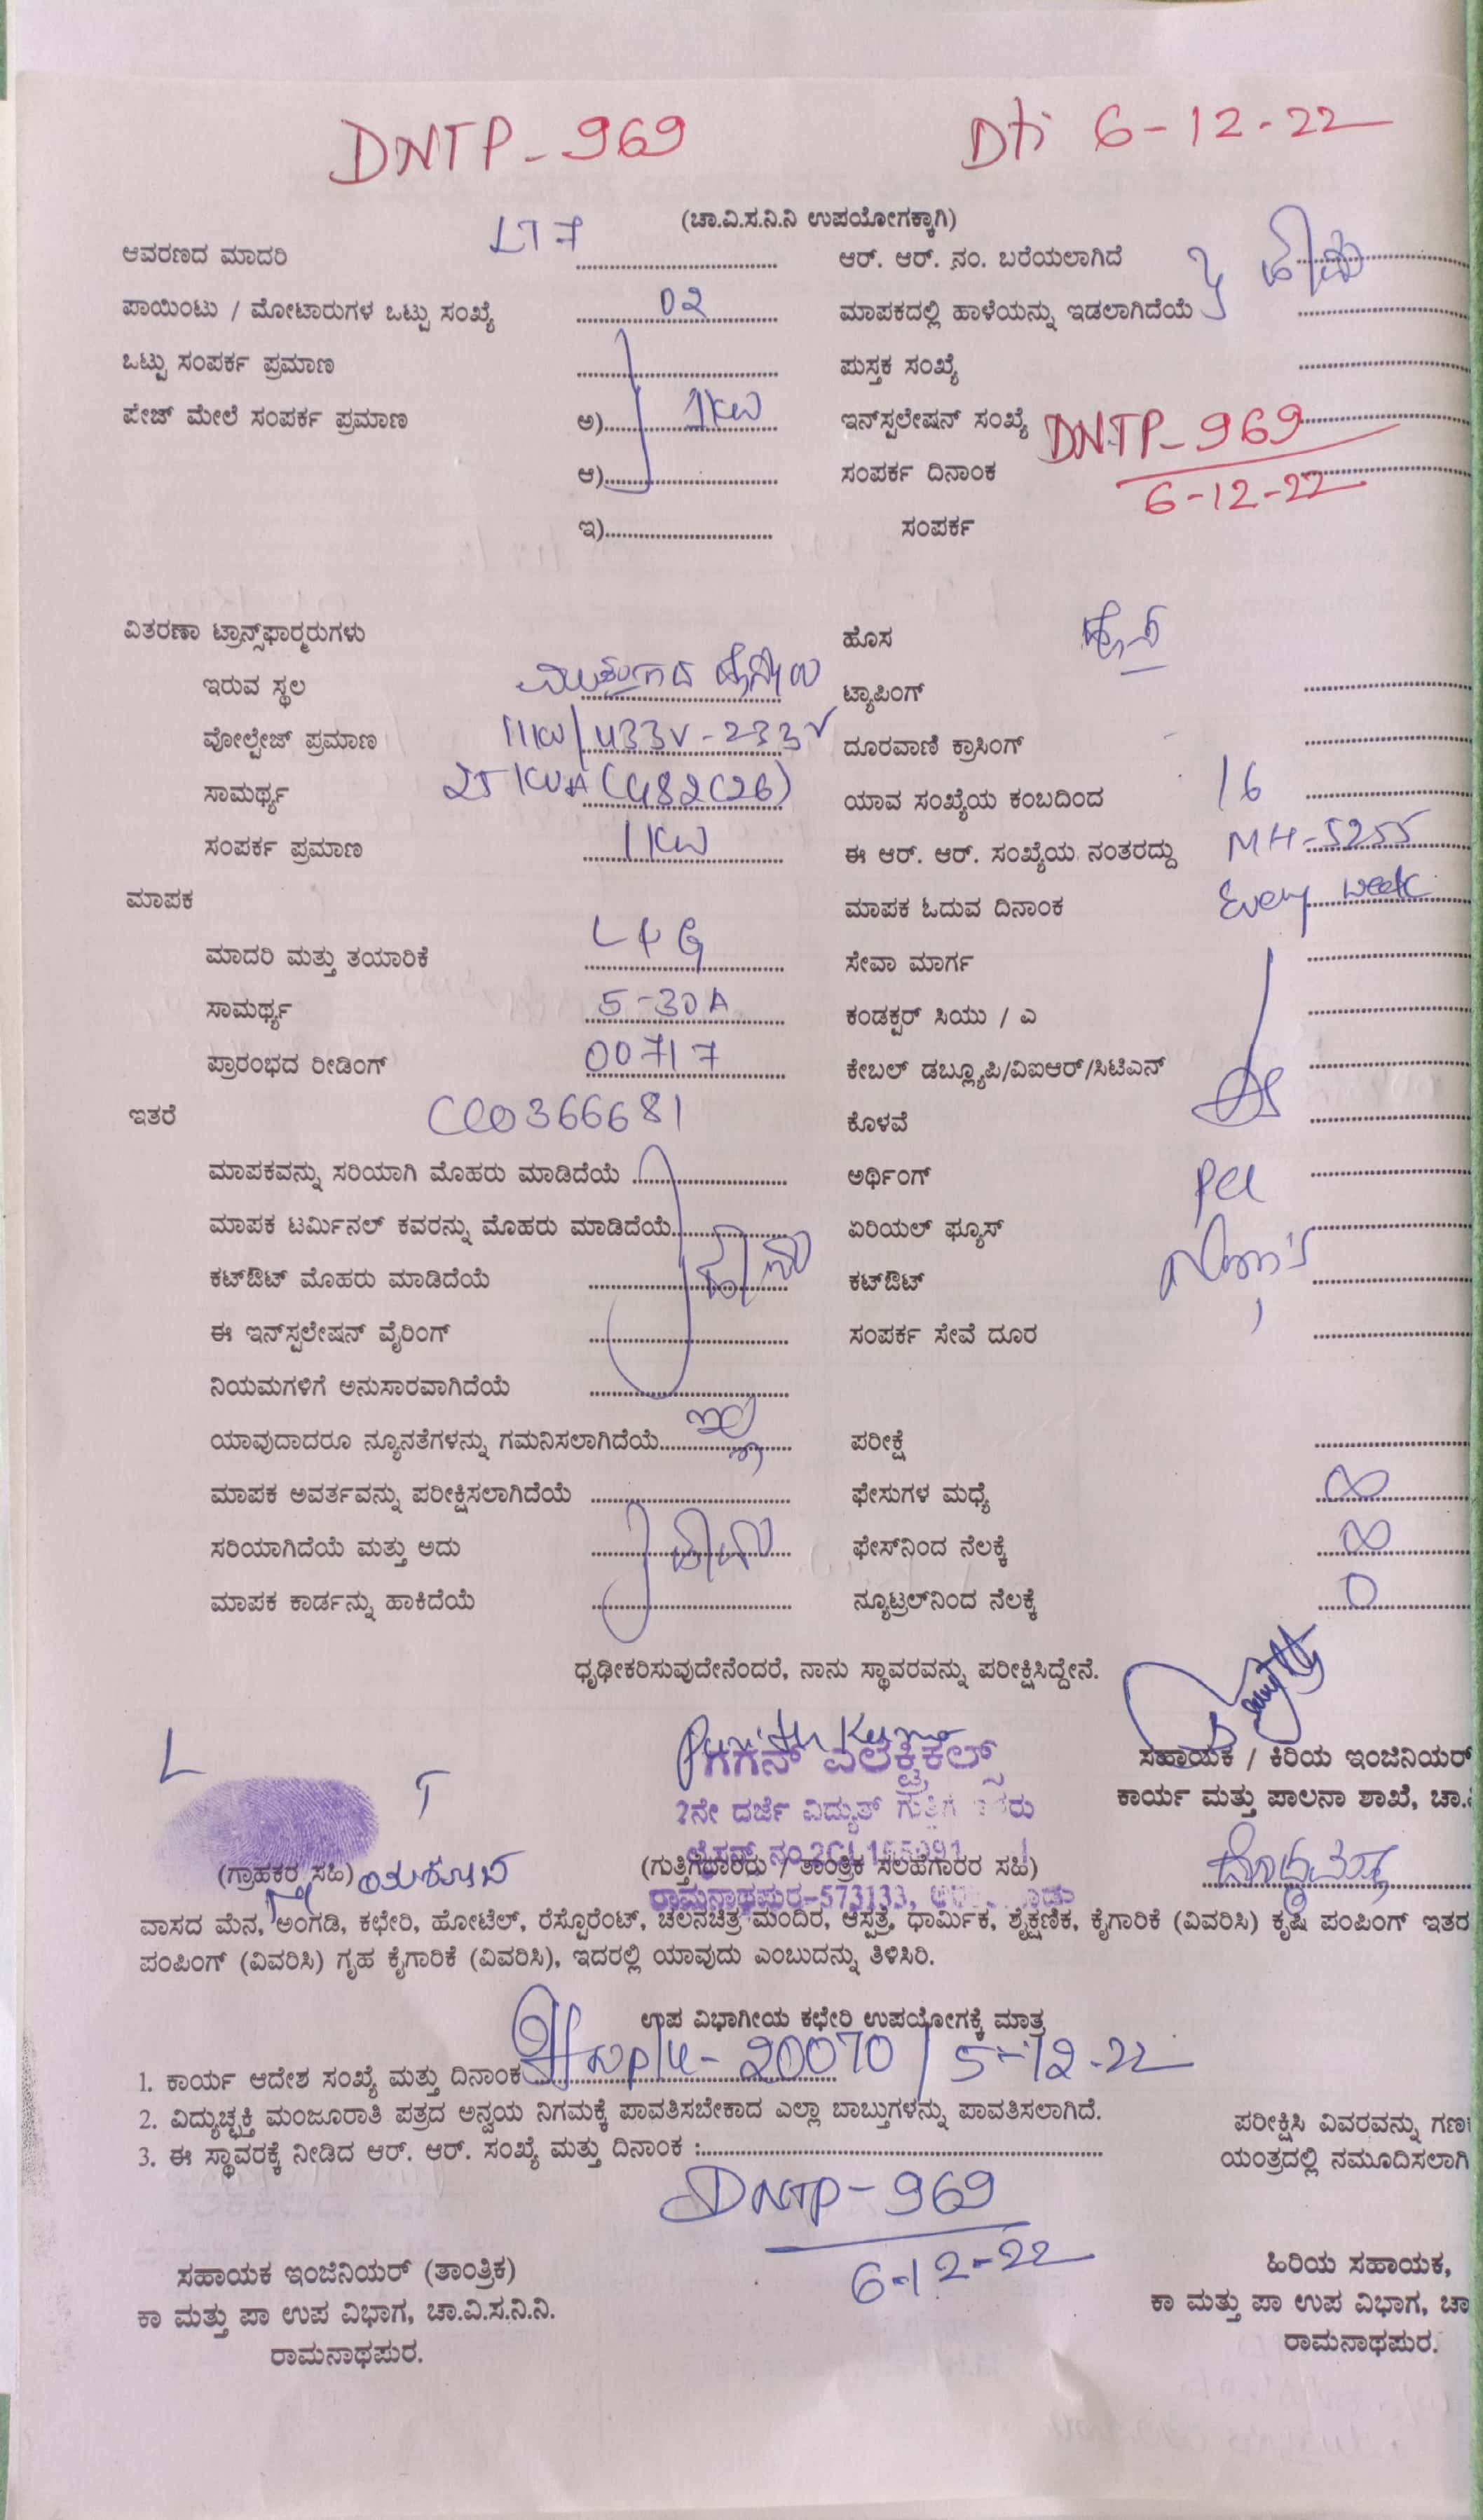 DNTP - 969 Dt: 6-12-22
(ಚಾ.ವಿ.ಸ.ನಿ.ನಿ ಉಪಯೋಗಕ್ಕಾಗಿ)
ಆವರಣದ ಮಾದರಿ LT7 ಆರ್. ಆರ್. ನಂ. ಬರೆಯಲಾಗಿದೆ
ಪಾಯಿಂಟು / ಮೋಟಾರುಗಳ ಒಟ್ಟು ಸಂಖ್ಯೆ 02 ಮಾಪಕದಲ್ಲಿ ಹಾಳೆಯನ್ನು ಇಡಲಾಗಿದೆಯೆ
ಒಟ್ಟು ಸಂಪರ್ಕ ಪ್ರಮಾಣ ಪುಸ್ತಕ ಸಂಖ್ಯೆ
ಪೇಜ್ ಮೇಲೆ ಸಂಪರ್ಕ ಪ್ರಮಾಣ ಅ) 1KW ಇನ್‌ಸ್ಟಲೇಷನ್ ಸಂಖ್ಯೆ DNTP-969
ಆ) ಸಂಪರ್ಕ ದಿನಾಂಕ 6-12-22
ಇ) ಸಂಪರ್ಕ
ವಿತರಣಾ ಟ್ರಾನ್ಸ್‌ಫಾರ್ಮರುಗಳು ಹೊಸ
ಇರುವ ಸ್ಥಲ ಟ್ಯಾಪಿಂಗ್
ವೋಲ್ಟೇಜ್ ಪ್ರಮಾಣ 11KV/433V-233V ದೂರವಾಣಿ ಕ್ರಾಸಿಂಗ್
ಸಾಮರ್ಥ್ಯ 25 KVA ಯಾವ ಸಂಖ್ಯೆಯ ಕಂಬದಿಂದ 16
ಸಂಪರ್ಕ ಪ್ರಮಾಣ 1KW ಈ ಆರ್. ಆರ್. ಸಂಖ್ಯೆಯ ನಂತರದ್ದು MH-5255
ಮಾಪಕ ಮಾಪಕ ಓದುವ ದಿನಾಂಕ Every week
ಮಾದರಿ ಮತ್ತು ತಯಾರಿಕೆ L&G ಸೇವಾ ಮಾರ್ಗ
ಸಾಮರ್ಥ್ಯ 5-30A ಕಂಡಕ್ಟರ್ ಸಿಯು / ಎ
ಪ್ರಾರಂಭದ ರೀಡಿಂಗ್ 00717 ಕೇಬಲ್ ಡಬ್ಲ್ಯೂಪಿ/ವಿಐಆರ್/ಸಿಟಿಎನ್
ಇತರೆ ಕೊಳವೆ
ಮಾಪಕವನ್ನು ಸರಿಯಾಗಿ ಮೊಹರು ಮಾಡಿದೆಯೆ ಅರ್ಥಿಂಗ್
ಮಾಪಕ ಟರ್ಮಿನಲ್ ಕವರನ್ನು ಮೊಹರು ಮಾಡಿದೆಯೆ ಏರಿಯಲ್ ಫ್ಯೂಸ್
ಕಟ್‌ಔಟ್ ಮೊಹರು ಮಾಡಿದೆಯೆ ಕಟ್‌ಔಟ್
ಈ ಇನ್‌ಸ್ಟಲೇಷನ್ ವೈರಿಂಗ್ ಸಂಪರ್ಕ ಸೇವೆ ದೂರ
ನಿಯಮಗಳಿಗೆ ಅನುಸಾರವಾಗಿದೆಯೆ
ಯಾವುದಾದರೂ ನ್ಯೂನತೆಗಳನ್ನು ಗಮನಿಸಲಾಗಿದೆಯೆ ಇಲ್ಲ ಪರೀಕ್ಷೆ
ಮಾಪಕ ಅವರ್ತವನ್ನು ಪರೀಕ್ಷಿಸಲಾಗಿದೆಯೆ ಫೇಸುಗಳ ಮಧ್ಯೆ ∞
ಸರಿಯಾಗಿದೆಯೆ ಮತ್ತು ಅದು ಫೇಸ್‌ನಿಂದ ನೆಲಕ್ಕೆ ∞
ಮಾಪಕ ಕಾರ್ಡನ್ನು ಹಾಕಿದೆಯೆ ನ್ಯೂಟ್ರಲ್‌ನಿಂದ ನೆಲಕ್ಕೆ 0
ಧೃಢೀಕರಿಸುವುದೇನೆಂದರೆ, ನಾನು ಸ್ಥಾವರವನ್ನು ಪರೀಕ್ಷಿಸಿದ್ದೇನೆ.
Punith Kumar
L T ಗಗನ್ ಎಲೆಕ್ಟ್ರಿಕಲ್ಸ್ ಸಹಾಯಕ / ಕಿರಿಯ ಇಂಜಿನಿಯರ್
2ನೇ ದರ್ಜೆ ವಿದ್ಯುತ್ ಕಾರ್ಯ ಮತ್ತು ಪಾಲನಾ ಶಾಖೆ, ಚಾ.
(ಗ್ರಾಹಕರ ಸಹಿ) (ಗುತ್ತಿಗೆದಾರರು / ತಾಂತ್ರಿಕ ಸಲಹೆಗಾರರ ಸಹಿ)
ರಾಮನಾಥಪುರ-573133,
ವಾಸದ ಮೆನ, ಅಂಗಡಿ, ಕಛೇರಿ, ಹೋಟೆಲ್, ರೆಸ್ಟೋರೆಂಟ್, ಚಲನಚಿತ್ರ ಮಂದಿರ, ಆಸ್ಪತ್ರೆ, ಧಾರ್ಮಿಕ, ಶೈಕ್ಷಣಿಕ, ಕೈಗಾರಿಕೆ (ವಿವರಿಸಿ) ಕೃಷಿ ಪಂಪಿಂಗ್ ಇತರ
ಪಂಪಿಂಗ್ (ವಿವರಿಸಿ) ಗೃಹ ಕೈಗಾರಿಕೆ (ವಿವರಿಸಿ), ಇದರಲ್ಲಿ ಯಾವುದು ಎಂಬುದನ್ನು ತಿಳಿಸಿರಿ.
ಉಪ ವಿಭಾಗೀಯ ಕಛೇರಿ ಉಪಯೋಗಕ್ಕೆ ಮಾತ್ರ
1. ಕಾರ್ಯ ಆದೇಶ ಸಂಖ್ಯೆ ಮತ್ತು ದಿನಾಂಕ 20070 / 5-12-22
2. ವಿದ್ಯುಚ್ಛಕ್ತಿ ಮಂಜೂರಾತಿ ಪತ್ರದ ಅನ್ವಯ ನಿಗಮಕ್ಕೆ ಪಾವತಿಸಬೇಕಾದ ಎಲ್ಲಾ ಬಾಬ್ತುಗಳನ್ನು ಪಾವತಿಸಲಾಗಿದೆ. ಪರೀಕ್ಷಿಸಿ ವಿವರವನ್ನು
3. ಈ ಸ್ಥಾವರಕ್ಕೆ ನೀಡಿದ ಆರ್. ಆರ್. ಸಂಖ್ಯೆ ಮತ್ತು ದಿನಾಂಕ : ಯಂತ್ರದಲ್ಲಿ ನಮೂದಿಸಲಾಗಿ
DNTP-969
6-12-22
ಸಹಾಯಕ ಇಂಜಿನಿಯರ್ (ತಾಂತ್ರಿಕ) ಹಿರಿಯ ಸಹಾಯಕ,
ಕಾ ಮತ್ತು ಪಾ ಉಪ ವಿಭಾಗ, ಚಾ.ವಿ.ಸ.ನಿ.ನಿ. ಕಾ ಮತ್ತು ಪಾ ಉಪ ವಿಭಾಗ, ಚಾ
ರಾಮನಾಥಪುರ. ರಾಮನಾಥಪುರ.